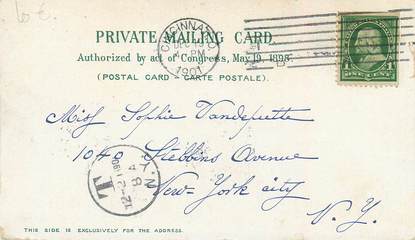 PRIVATE MAILING CARD.
Authorized by act of Congress, May 19, 1898.
(POSTAL CARD - CARTE POSTALE).
CINCINNATI, O.
DEC 19
PM
1901
ONE CENT
Miss Sophie Vandeputte
1040 Stebbins Avenue
New-York city
N. Y.
T
12-21
THIS SIDE IS EXCLUSIVELY FOR THE ADDRESS.